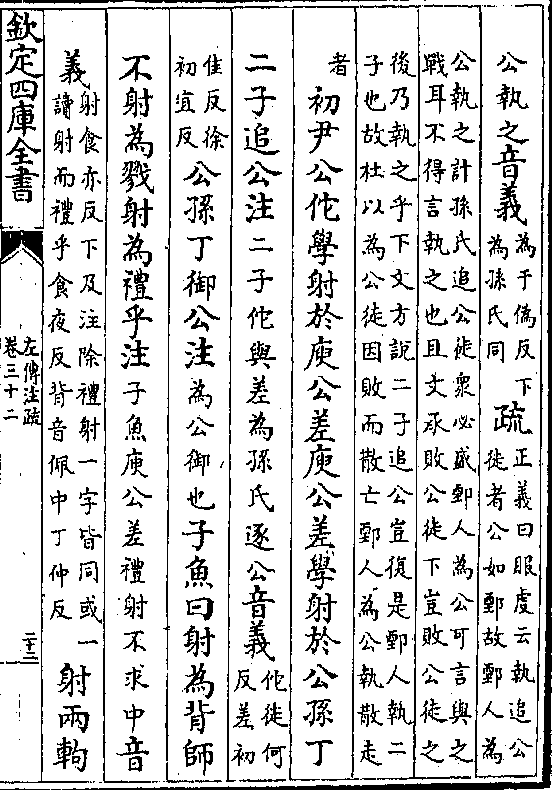 公執之音義為于偽反下為孫氏同疏正義曰服虔云執追公徒者公如鄄故鄄人為
公執之計孫氏追公徒衆必盛鄄人為公可言與之
戰耳不得言執之也且文承敗公徒下豈敗公徒之
後乃執之乎下文方說二子追公豈復是鄄人執二
子也故杜以為公徒因敗而散亡鄄人為公執散走
者
初尹公佗學射於庾公差庾公差學射於公孫丁
二子追公注二子佗與差為孫氏逐公音義佗徒何反差初
佳反徐初宜反公孫丁御公注為公御也子魚曰射為背師
不射為戮射為禮乎注子魚庾公差禮射不求中音
義射食亦反下及注除禮射一字皆同或一讀射而禮乎食夜反背音佩中丁仲反射兩軥
欽定四庫全書
左傳注疏
卷三十二
二十二